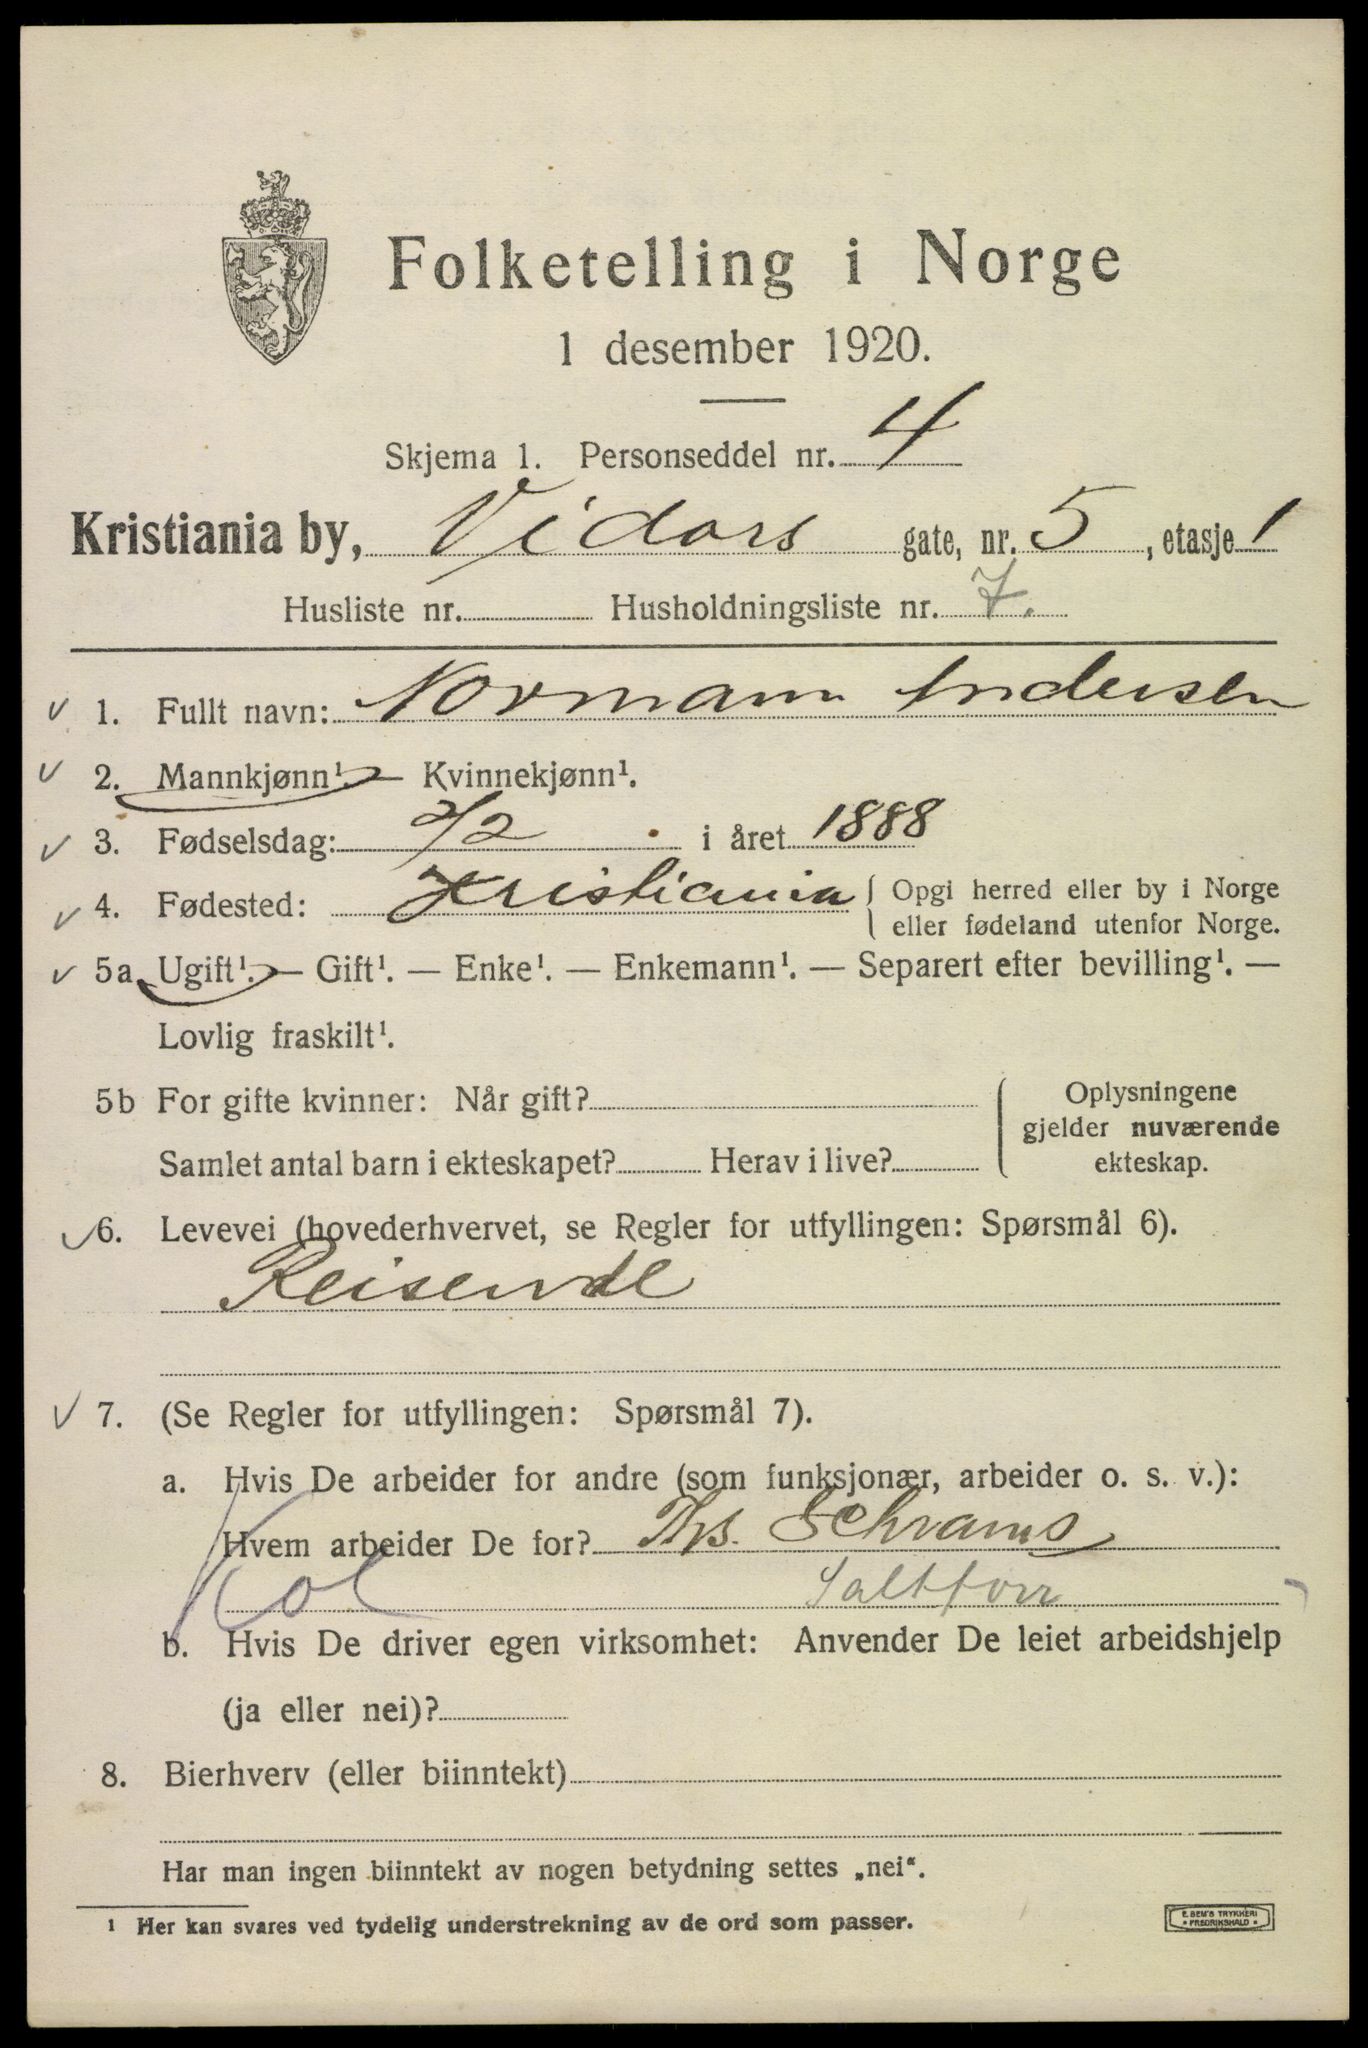 Folketelling i Norge
1 desember 1920.
Skjema 1. Personseddel nr. 4
Kristiania by, Vidars gate, nr. 5, etasje 1
Husliste nr. Husholdningsliste nr. 7.
1. Fullt navn: Normann Andersen
2. Mannkjønn¹. — Kvinnekjønn¹.
3. Fødselsdag: 2/2 i året 1888
4. Fødested: Kristiania { Opgi herred eller by i Norge
eller fødeland utenfor Norge.
5a Ugift¹. — Gift¹. — Enke¹. — Enkemann¹. — Separert efter bevilling¹. —
Lovlig fraskilt¹.
5b For gifte kvinner: Når gift?
Samlet antal barn i ekteskapet? Herav i live?
Oplysningene
gjelder nuværende
ekteskap.
6. Levevei (hovederhvervet, se Regler for utfyllingen: Spørsmål 6).
Reisende
7. (Se Regler for utfyllingen: Spørsmål 7).
a. Hvis De arbeider for andre (som funksjonær, arbeider o. s. v.):
Hvem arbeider De for? Ths. Schrams
Kol Saltforr
b. Hvis De driver egen virksomhet: Anvender De leiet arbeidshjelp
(ja eller nei)?
8. Bierhverv (eller biinntekt)
Har man ingen biinntekt av nogen betydning settes „nei“.
1 Her kan svares ved tydelig understrekning av de ord som passer.
E. SEM'S TRYKKERI
• FREDRIKSHALD •